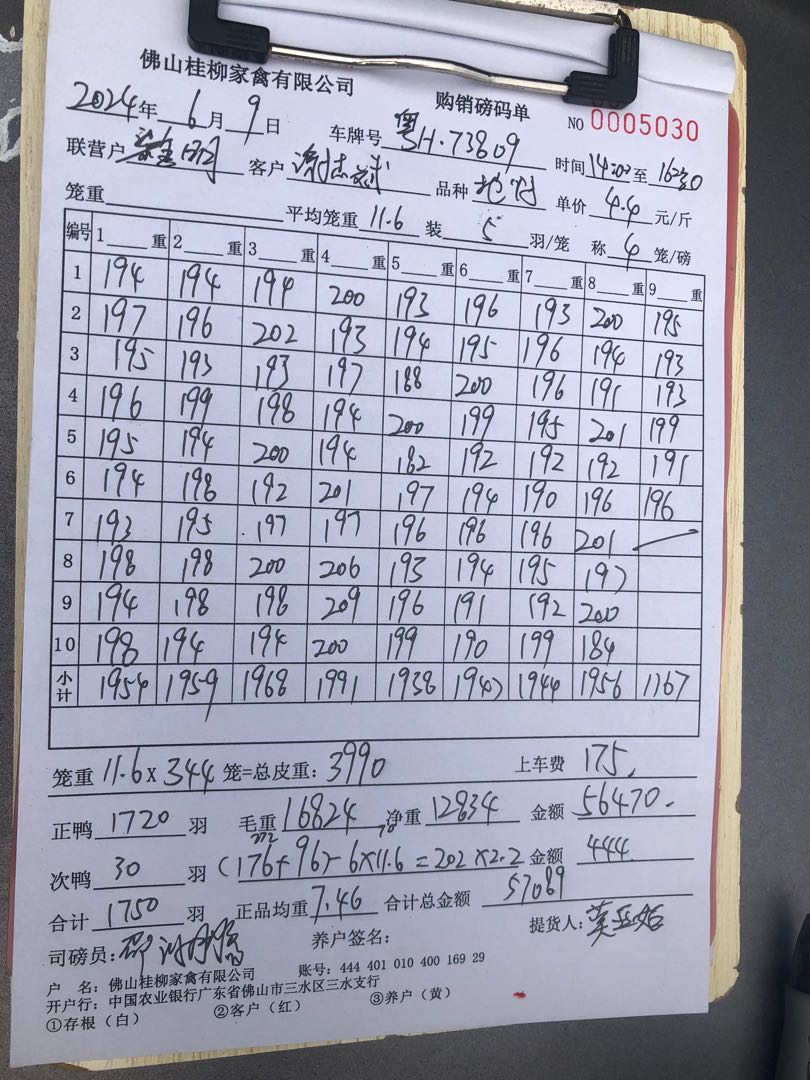 佛山桂柳家禽有限公司 购销磅码单 NO 0005030
2024年 6月 9日 车牌号 粤H·73809 时间 14:20 至 16:30
联营户 客户 品种 单价 4.4 元/斤
笼重 平均笼重 11.6 装 5 羽/笼 称 4 笼/磅
编号 1 重 2 重 3 重 4 重 5 重 6 重 7 重 8 重 9 重
1 194 194 194 200 193 196 193 200 195
2 197 196 202 193 194 195 196 194 193
3 195 193 193 197 188 200 196 191 193
4 196 199 198 194 200 199 195 201 199
5 195 194 200 194 182 192 192 192 191
6 194 198 192 201 197 194 190 196 196
7 193 195 197 197 196 196 196 201
8 198 198 200 206 193 194 195 197
9 194 198 198 209 196 191 192 200
10 198 194 194 200 199 190 199 184
小计 1954 1959 1968 1991 1938 1947 1944 1956 1167
笼重 11.6 x 344 笼=总皮重: 3990 上车费 175.
正鸭 1720 羽 毛重 16824 净重 12834 金额 56470.
272 70
次鸭 30 羽 (176+96)-6×11.6=202×2.2 金额 444
合计 1750 羽 正品均重 7.46 合计总金额 57089
司磅员: 养户签名: 提货人:
户 名: 佛山桂柳家禽有限公司 账号: 444 401 010 400 169 29
开户行: 中国农业银行广东省佛山市三水区三水支行
①存根(白) ②客户(红) ③养户(黄)